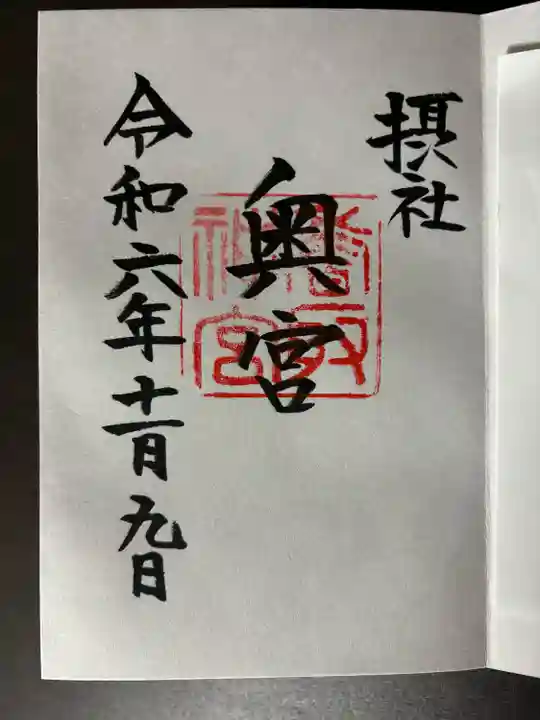 摂社
奥宮
令和六年十一月九日